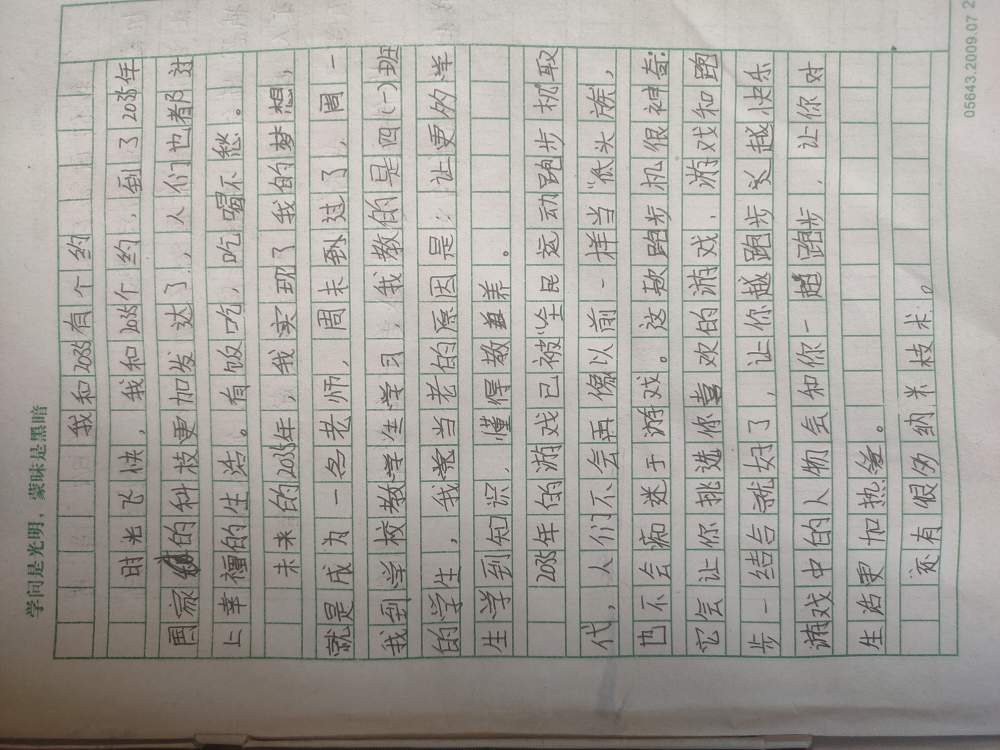 学问是光明，蒙昧是黑暗
我和2035有个约
时光飞快，我和2035个约，到了2035年
国家的科技更加发达了，人们也都过
上幸福的生活。有饭吃，吃喝不愁。
未来的2035年，我实现了我的梦想，
就是成为一名老师，周末到过了，周一
我到学校教学生学习，我教的是四(一)班
的学生，我当老的原因是：让更多的学
生学到知识，懂得教养。
2035年的游戏已被“全民运动跑步机取
代，人们不会再像以前一样当“低头族，
也不会痴迷于游戏。这款跑步机很神奇：
它会让你挑选你喜欢的游戏，游戏和跑
步一结合就好了，让你越跑步越快乐
游戏中的人物会和你一起跑步，让你对
生活更加热爱。
还有很多纳米枝术。
05643.2009.07 2